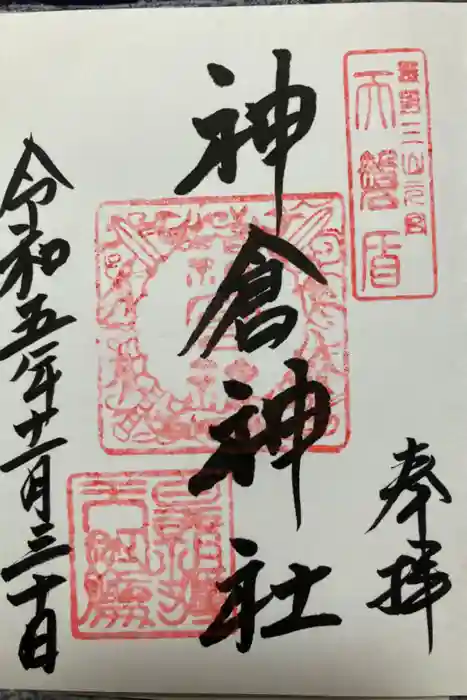 熊野三山元宮
天磐盾
奉拝
神倉神社
令和五年十一月三十日